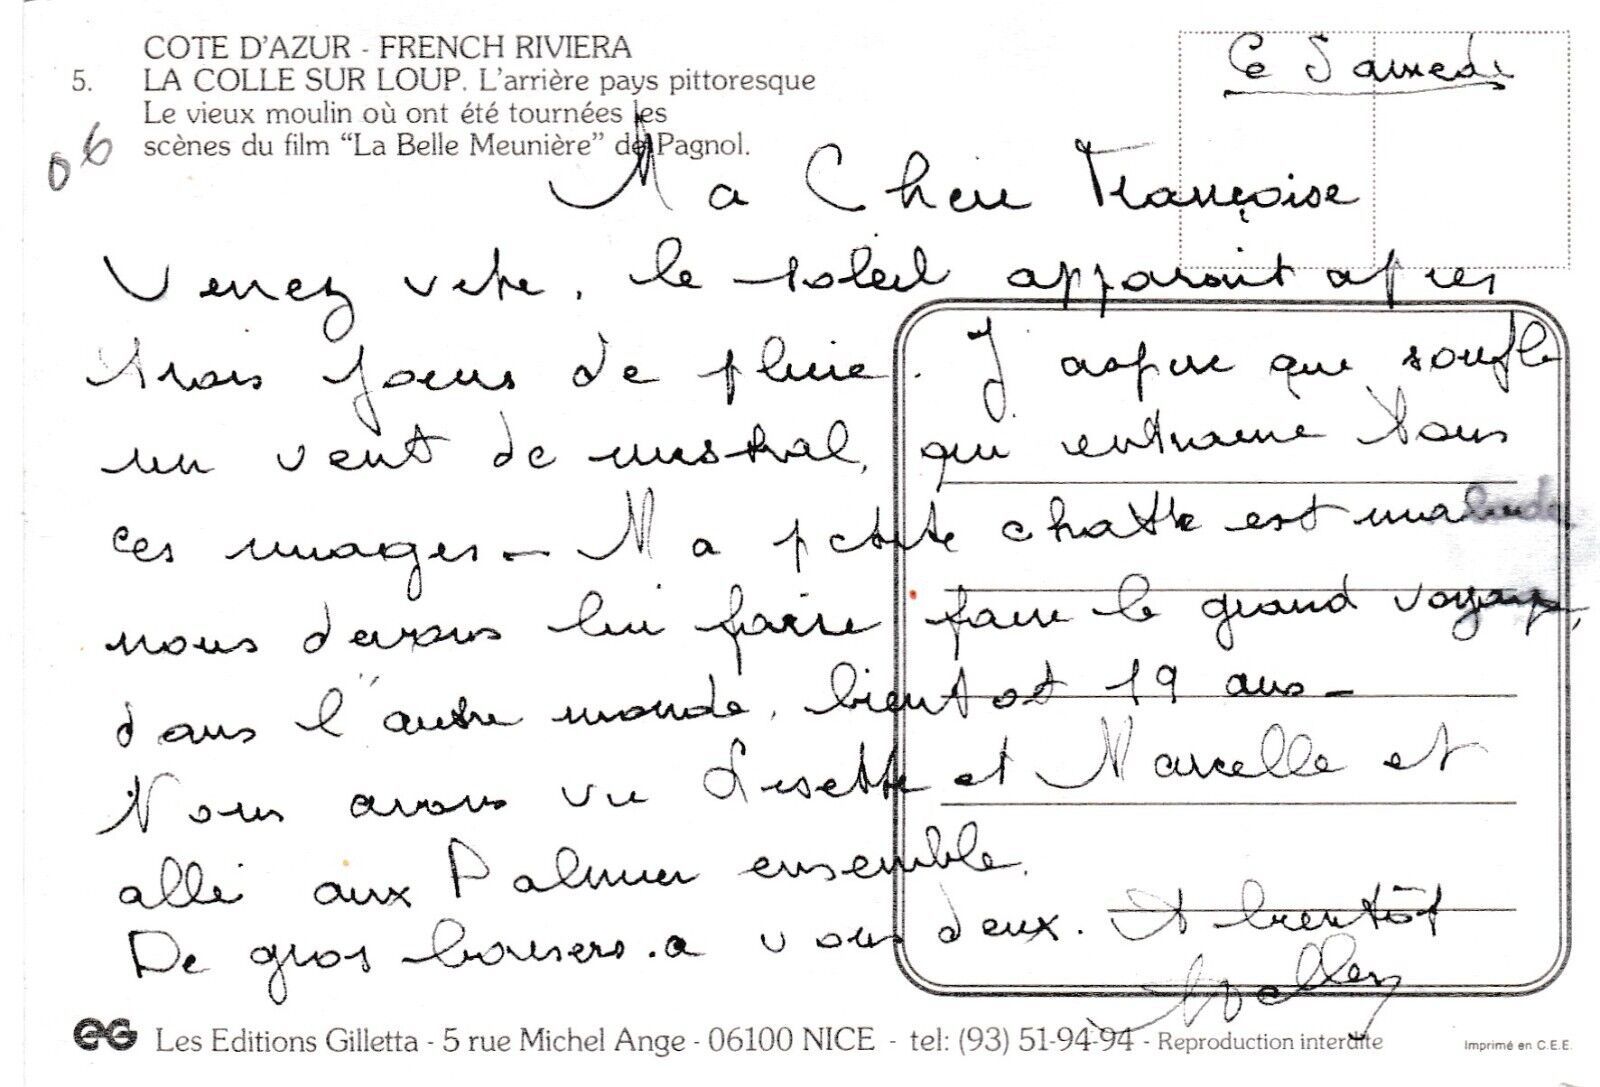 COTE D'AZUR - FRENCH RIVIERA
5. LA COLLE SUR LOUP. L'arrière pays pittoresque
Le vieux moulin où ont été tournées les
scènes du film "La Belle Meunière" de Pagnol.
06
Ce Samedi
Ma Chère Françoise
Venez vite, le soleil apparait apres
trois jours de pluie. J'aspire que souffle
un vent de mistral, qui entraine tous
ces nuages - Ma petite chatte est malade
nous devons lui faire faire le grand voyage,
dans l'autre monde, bientot 19 ans -
Nous avons vu Lisette et Marcelle et
allé aux Palmier ensemble.
De gros baisers a vous deux. A bientôt
EG Les Editions Gilletta - 5 rue Michel Ange - 06100 NICE - tel: (93) 51-94-94 - Reproduction interdite
Imprimé en C.E.E.